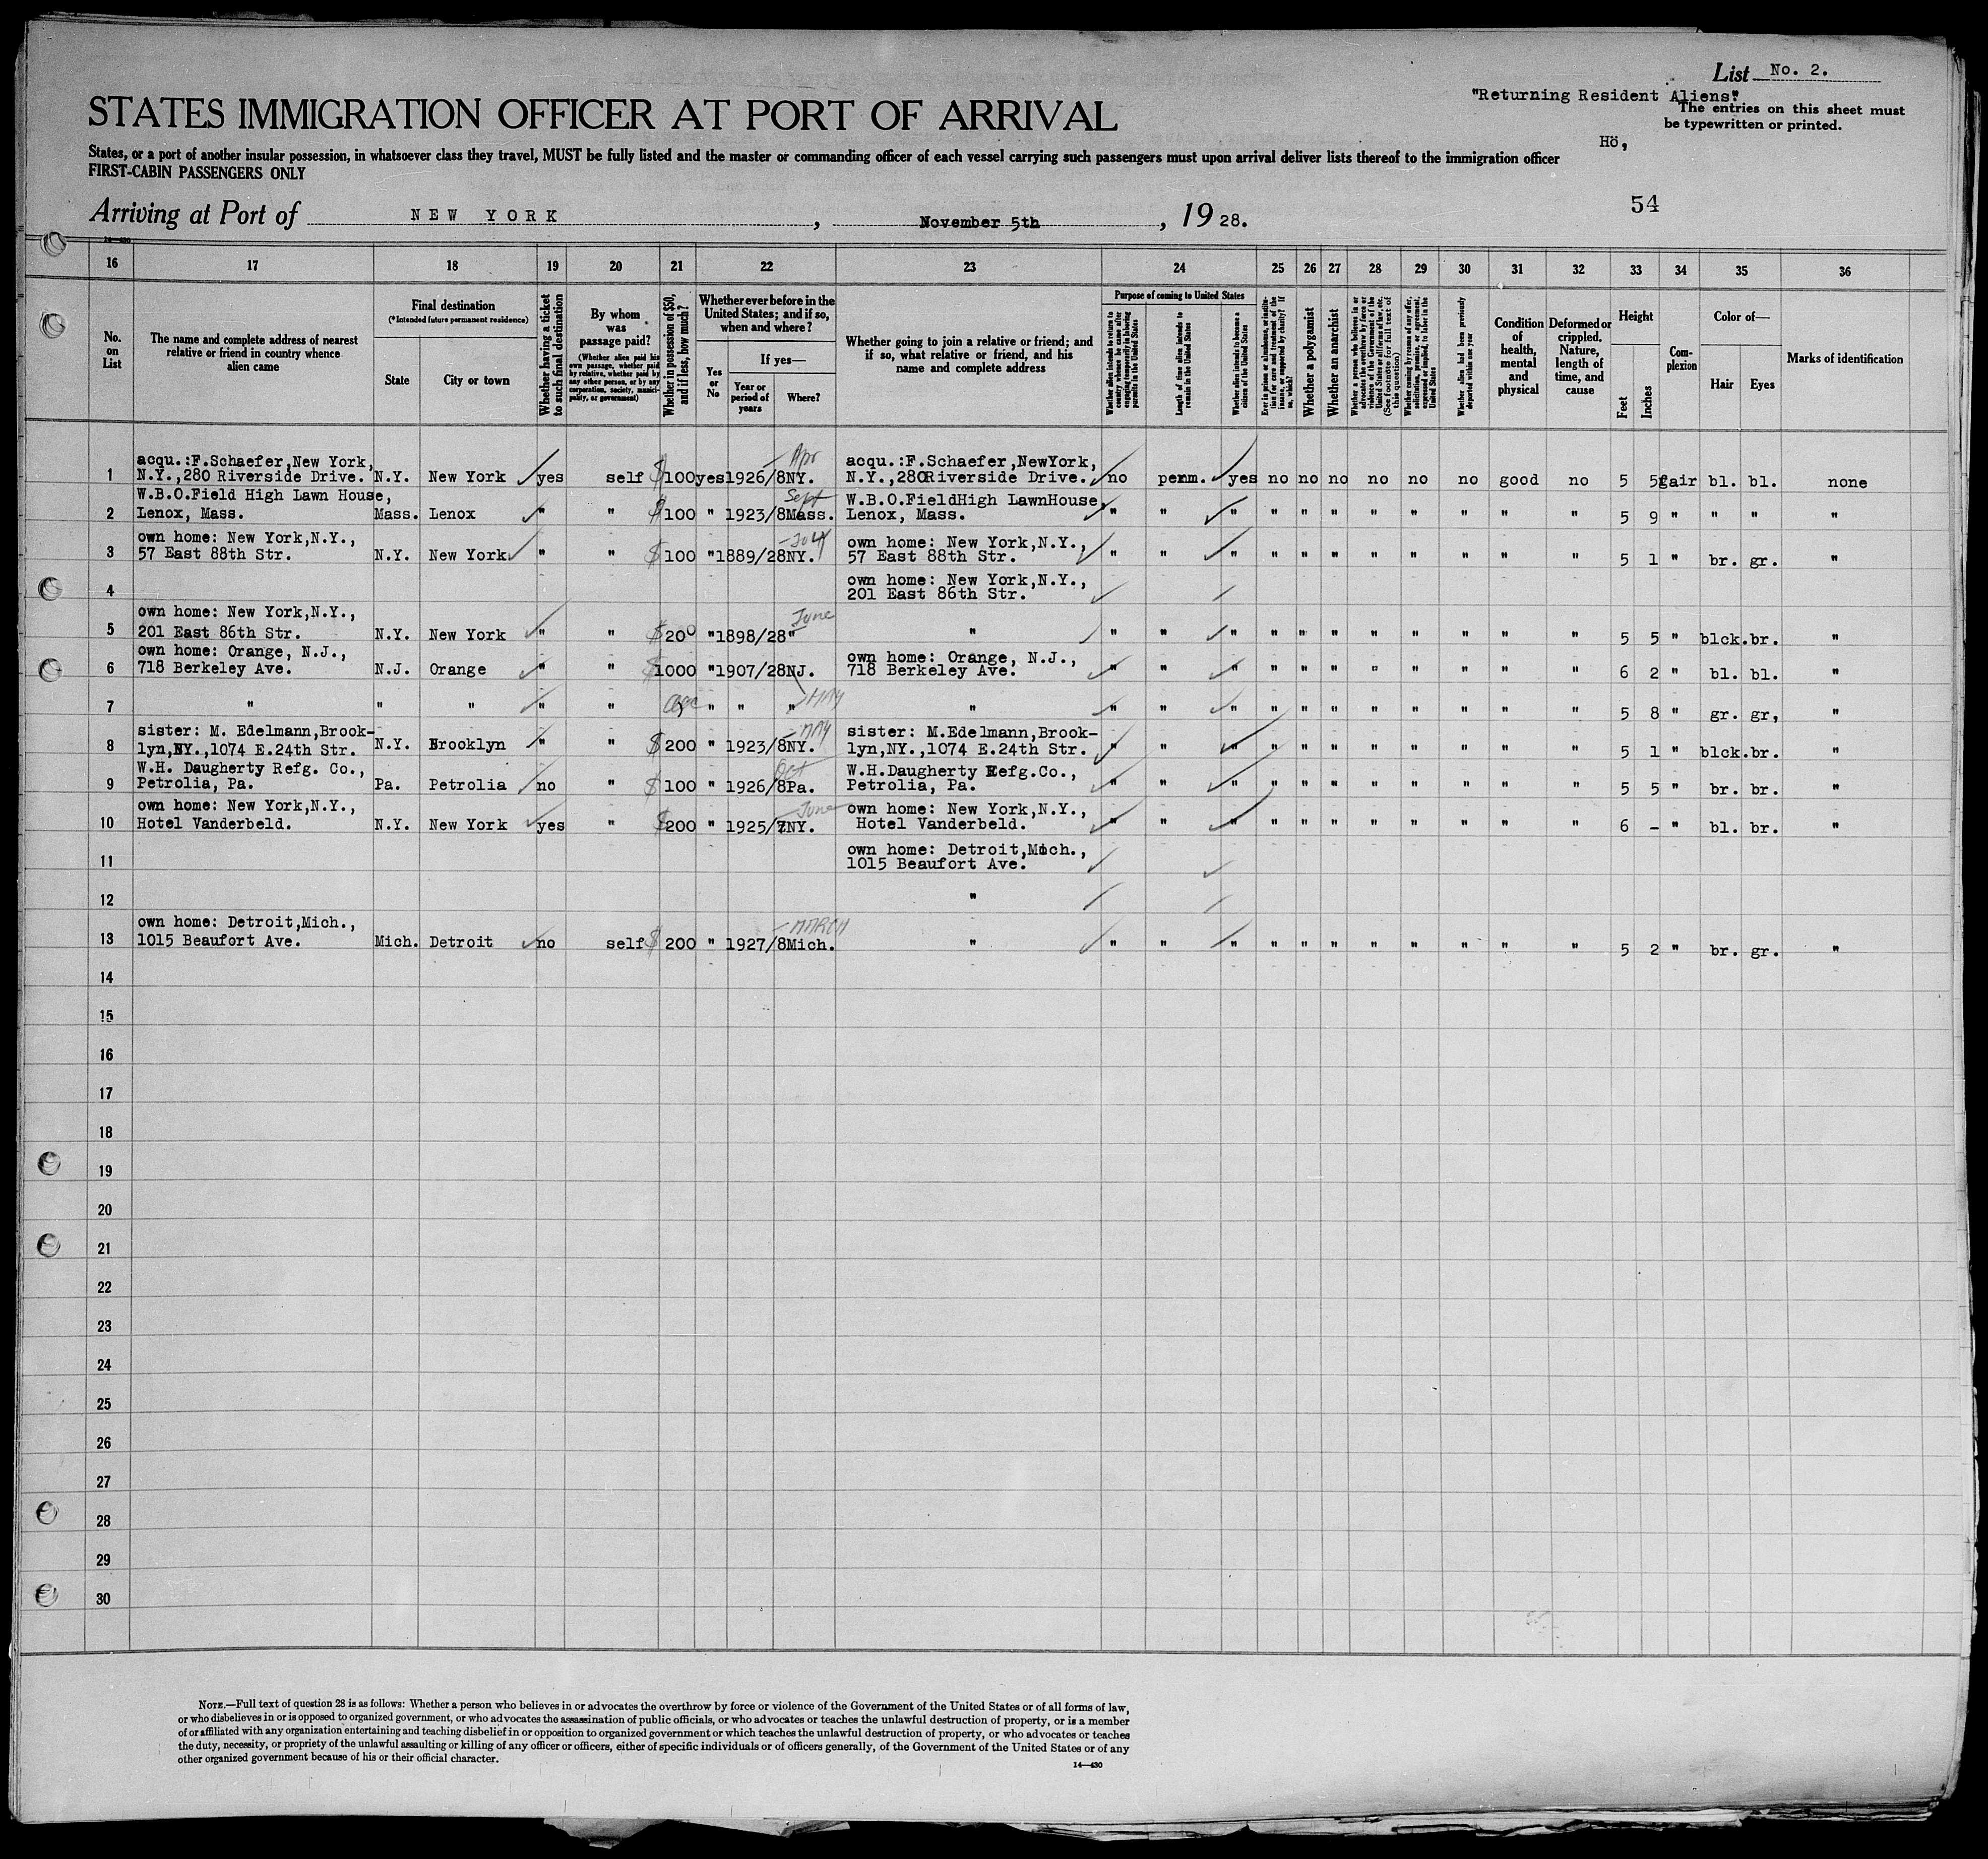 List No. 2.
"Returning Resident Aliens".
STATES IMMIGRATION OFFICER AT PORT OF ARRIVAL
The entries on this sheet must
be typewritten or printed.
Hö,
States, or a port of another insular possession, in whatsoever class they travel, MUST be fully listed and the master or commanding officer of each vessel carrying such passengers must upon arrival deliver lists thereof to the immigration officer
FIRST-CABIN PASSENGERS ONLY
54
Arriving at Port of NEW YORK, November 5th, 1928.
14—430
16 17 18 19 20 21 22 23 24 25 26 27 28 29 30 31 32 33 34 35 36
No. on List
The name and complete address of nearest relative or friend in country whence alien came
Final destination
(*Intended future permanent residence)
State
City or town
Whether having a ticket to such final destination
By whom was passage paid?
(Whether alien paid his own passage, whether paid by relative, whether paid by any other person, or by any corporation, society, municipality, or government)
Whether in possession of $50, and if less, how much?
Whether ever before in the United States; and if so, when and where?
Yes or No
If yes—
Year or period of years
Where?
Whether going to join a relative or friend; and if so, what relative or friend, and his name and complete address
Purpose of coming to United States
Whether alien intends to return to country whence he came after engaging temporarily in laboring pursuits in the United States
Length of time alien intends to remain in the United States
Whether alien intends to become a citizen of the United States
Ever in prison or almshouse, or institution for care and treatment of the insane, or supported by charity? If so, which?
Whether a polygamist
Whether an anarchist
Whether a person who believes in or advocates the overthrow by force or violence of the Government of the United States or all forms of law, etc. (See footnote for full text of this question)
Whether coming by reason of any offer, solicitation, promise, or agreement, expressed or implied, to labor in the United States
Whether alien had been previously deported within one year
Condition of health, mental and physical
Deformed or crippled. Nature, length of time, and cause
Height
Feet
Inches
Complexion
Color of—
Hair
Eyes
Marks of identification
1 acqu.:F.Schaefer,New York, N.Y.,280 Riverside Drive. N.Y. New York yes self $100 yes 1926/8 NY. Apr acqu.:F.Schaefer,NewYork, N.Y.,280 Riverside Drive. no perm. yes no no no no no no good no 5 5 fair bl. bl. none
2 W.B.O.Field High Lawn House, Lenox, Mass. Mass. Lenox " " $100 " 1923/8 Mass. Sept W.B.O.FieldHigh LawnHouse, Lenox, Mass. " " " " " " " " " " " 5 9 " " " "
3 own home: New York,N.Y., 57 East 88th Str. N.Y. New York " " $100 " 1889/28 NY. July own home: New York,N.Y., 57 East 88th Str. " " " " " " " " " " " 5 1 " br. gr. "
4 own home: New York,N.Y., 201 East 86th Str.
5 own home: New York,N.Y., 201 East 86th Str. N.Y. New York " " $200 " 1898/28 " June " " " " " " " " " " " " 5 5 " blck. br. "
6 own home: Orange, N.J., 718 Berkeley Ave. N.J. Orange " " $1000 " 1907/28 NJ. own home: Orange, N.J., 718 Berkeley Ave. " " " " " " " " " " " 6 2 " bl. bl. "
7 " " " " " " " " MAY " " " " " " " " " " " " " 5 8 " gr. gr, "
8 sister: M. Edelmann,Brooklyn,NY.,1074 E.24th Str. N.Y. Brooklyn " " $200 " 1923/8 NY. MAY sister: M.Edelmann,Brooklyn,NY.,1074 E.24th Str. " " " " " " " " " " " 5 1 " blck. br. "
9 W.H. Daugherty Refg. Co., Petrolia, Pa. Pa. Petrolia no " $100 " 1926/8 Pa. Oct W.H.Daugherty Refg.Co., Petrolia, Pa. " " " " " " " " " " " 5 5 " br. br. "
10 own home: New York,N.Y., Hotel Vanderbeld. N.Y. New York yes " $200 " 1925/7 NY. June own home: New York,N.Y., Hotel Vanderbeld. " " " " " " " " " " " 6 - " bl. br. "
11 own home: Detroit,Mich., 1015 Beaufort Ave.
12 "
13 own home: Detroit,Mich., 1015 Beaufort Ave. Mich. Detroit no self $200 " 1927/8 Mich. MARCH " " " " " " " " " " " " 5 2 " br. gr. "
14
15
16
17
18
19
20
21
22
23
24
25
26
27
28
29
30
NOTE.—Full text of question 28 is as follows: Whether a person who believes in or advocates the overthrow by force or violence of the Government of the United States or of all forms of law,
or who disbelieves in or is opposed to organized government, or who advocates the assassination of public officials, or who advocates or teaches the unlawful destruction of property, or is a member
of or affiliated with any organization entertaining and teaching disbelief in or opposition to organized government or which teaches the unlawful destruction of property, or who advocates or teaches
the duty, necessity, or propriety of the unlawful assaulting or killing of any officer or officers, either of specific individuals or of officers generally, of the Government of the United States or of any
other organized government because of his or their official character.
14—430